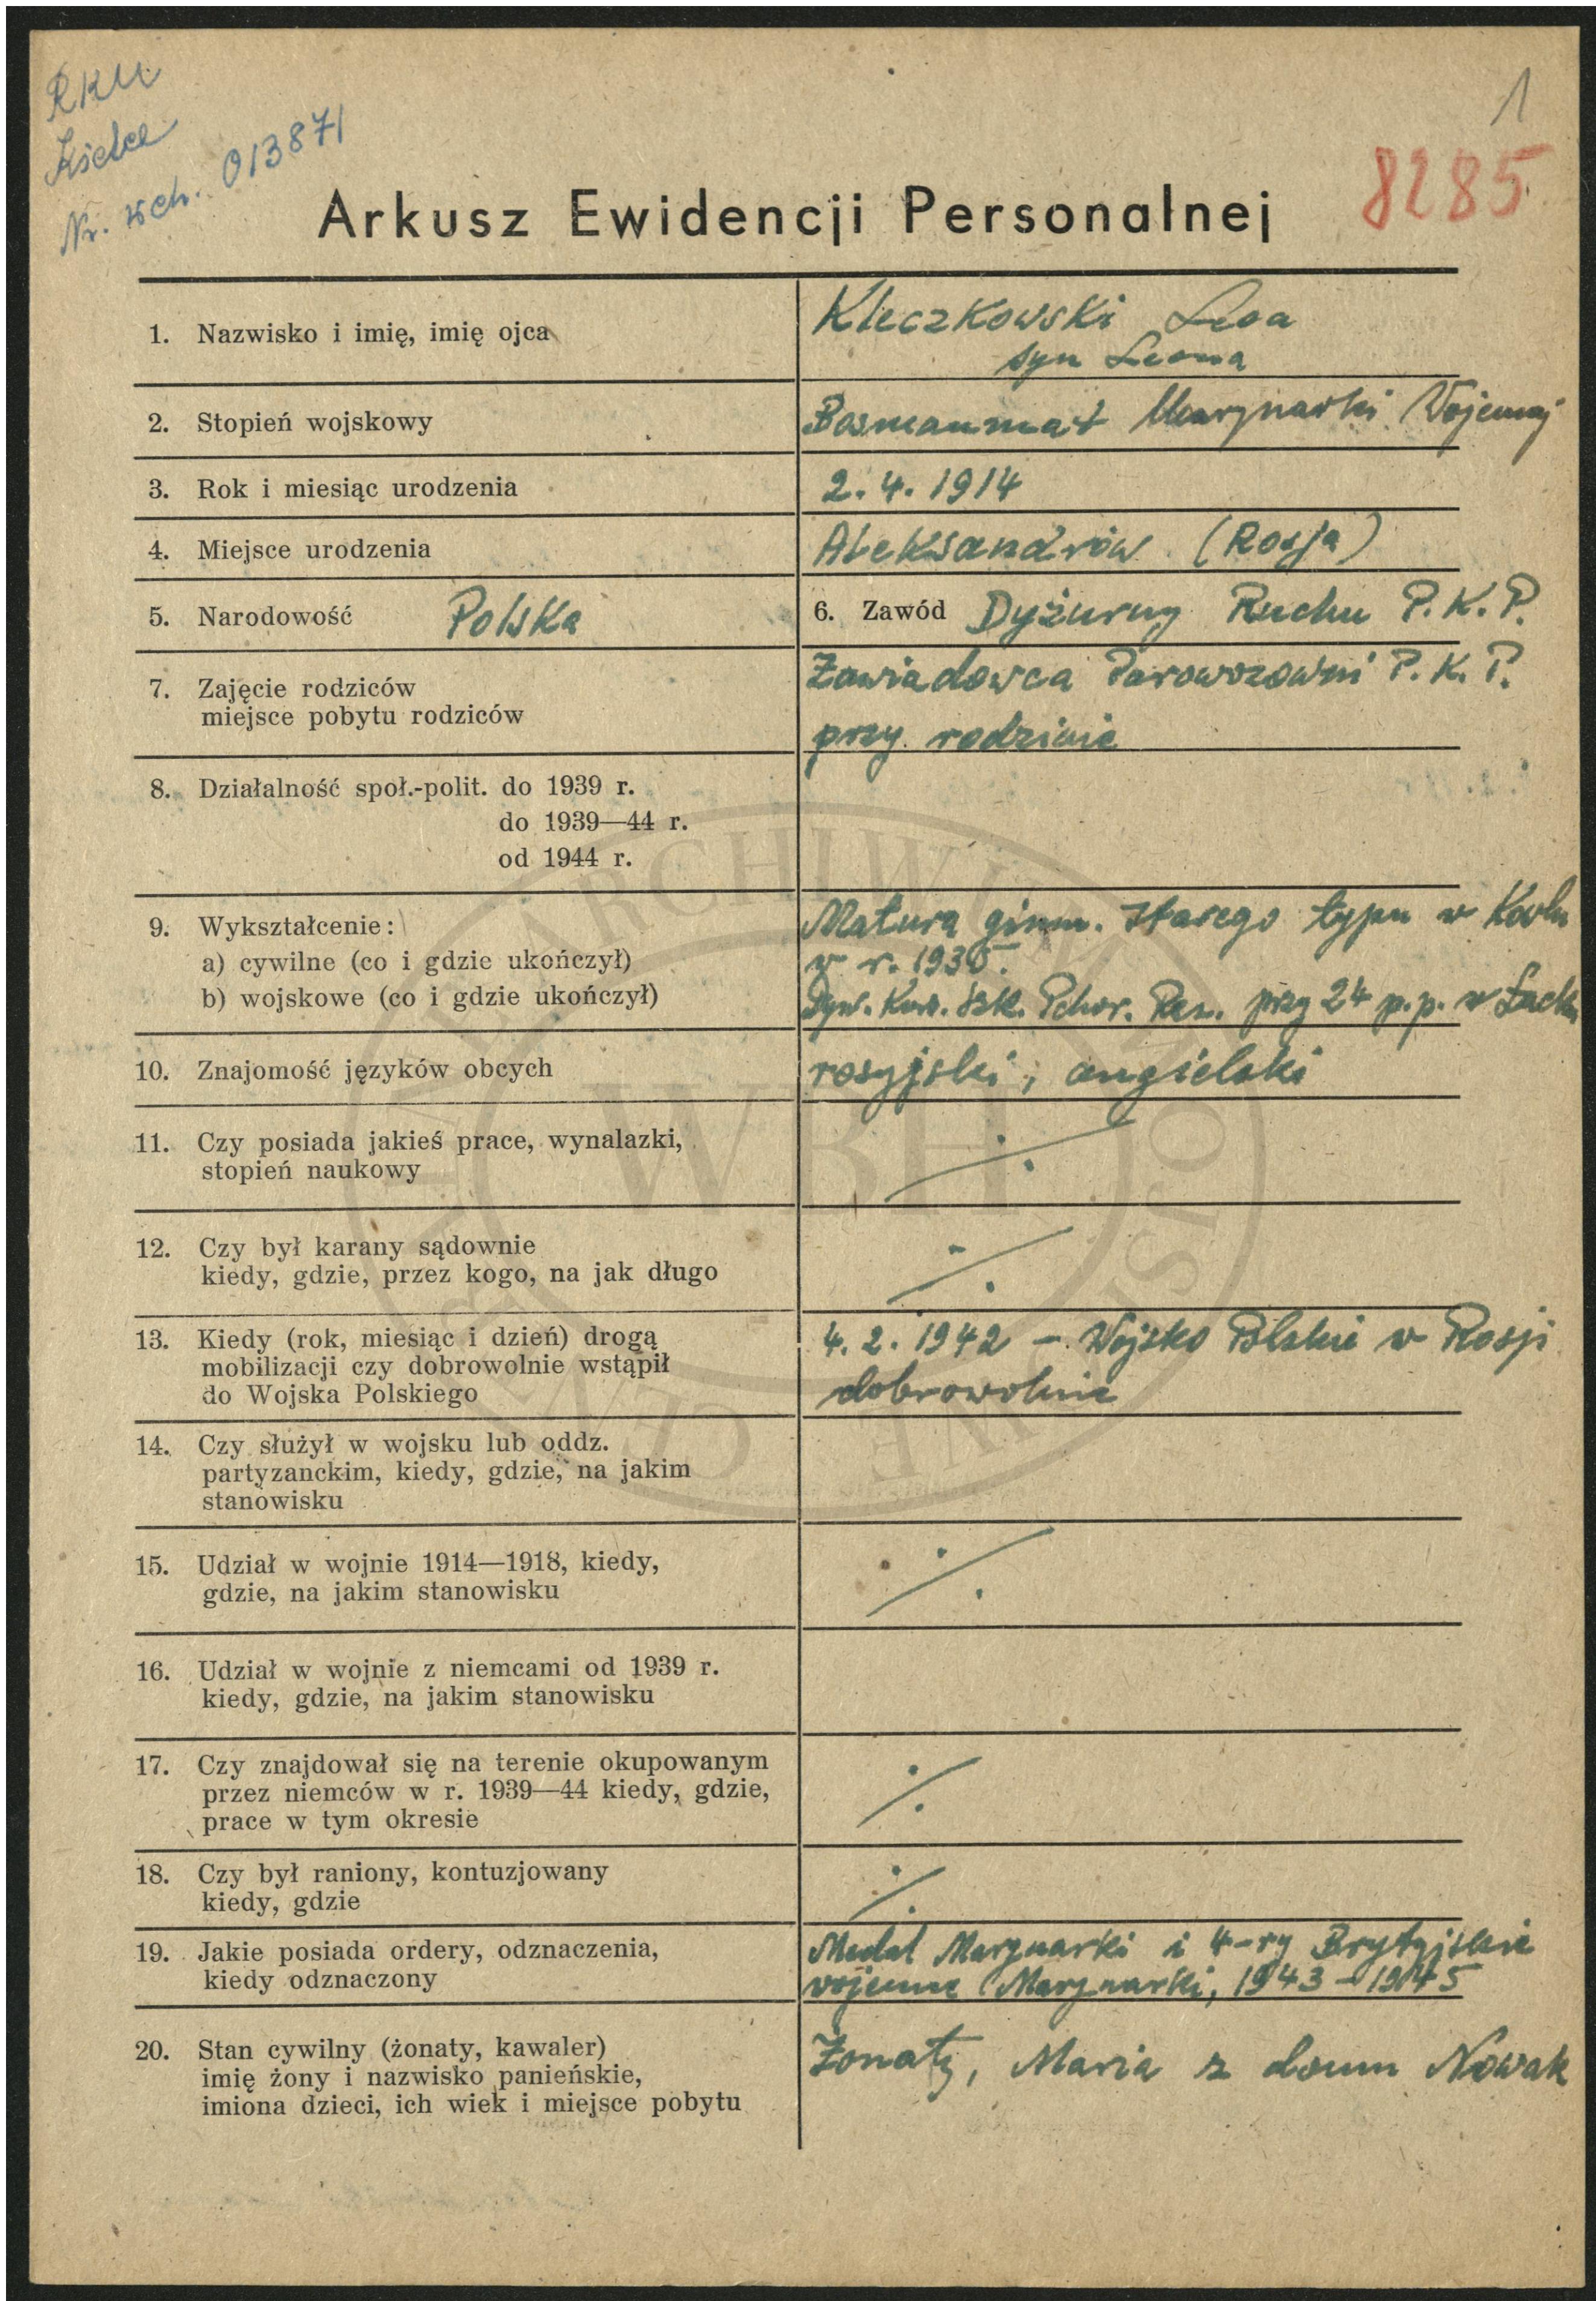 RKU
Kielce
Nr. wch. 013871
1
8285
Arkusz Ewidencji Personalnej
1. Nazwisko i imię, imię ojca
Kleczkowski Leon
syn Leona
2. Stopień wojskowy
Bosmanmat Marynarki Wojennej
3. Rok i miesiąc urodzenia
2. 4. 1914
4. Miejsce urodzenia
Aleksandrów (Rosja)
5. Narodowość Polska
6. Zawód Dyżurny Ruchu P. K. P.
7. Zajęcie rodziców
miejsce pobytu rodziców
Zawiadowca Parowozowni P. K. P.
przy rodzinie
8. Działalność społ.-polit. do 1939 r.
do 1939—44 r.
od 1944 r.
9. Wykształcenie:
a) cywilne (co i gdzie ukończył)
b) wojskowe (co i gdzie ukończył)
Matura gimn. starego typu w Kowlu
w r. 1935.
Dyw. Kurs. Szk. Pchor. Rez. przy 24 p.p. w Łucku
10. Znajomość języków obcych
rosyjski, angielski
11. Czy posiada jakieś prace, wynalazki,
stopień naukowy
12. Czy był karany sądownie
kiedy, gdzie, przez kogo, na jak długo
13. Kiedy (rok, miesiąc i dzień) drogą
mobilizacji czy dobrowolnie wstąpił
do Wojska Polskiego
4. 2. 1942 – Wojsko Polskie w Rosji
dobrowolnie
14. Czy służył w wojsku lub oddz.
partyzanckim, kiedy, gdzie, na jakim
stanowisku
15. Udział w wojnie 1914—1918, kiedy,
gdzie, na jakim stanowisku
16. Udział w wojnie z niemcami od 1939 r.
kiedy, gdzie, na jakim stanowisku
17. Czy znajdował się na terenie okupowanym
przez niemców w r. 1939—44 kiedy, gdzie,
prace w tym okresie
18. Czy był raniony, kontuzjowany
kiedy, gdzie
19. Jakie posiada ordery, odznaczenia,
kiedy odznaczony
Medal Marynarki i 4-ry Brytyjskie
wojenne Marynarki, 1943 – 1945
20. Stan cywilny (żonaty, kawaler)
imię żony i nazwisko panieńskie,
imiona dzieci, ich wiek i miejsce pobytu
Żonaty, Maria z domu Nowak
WBH